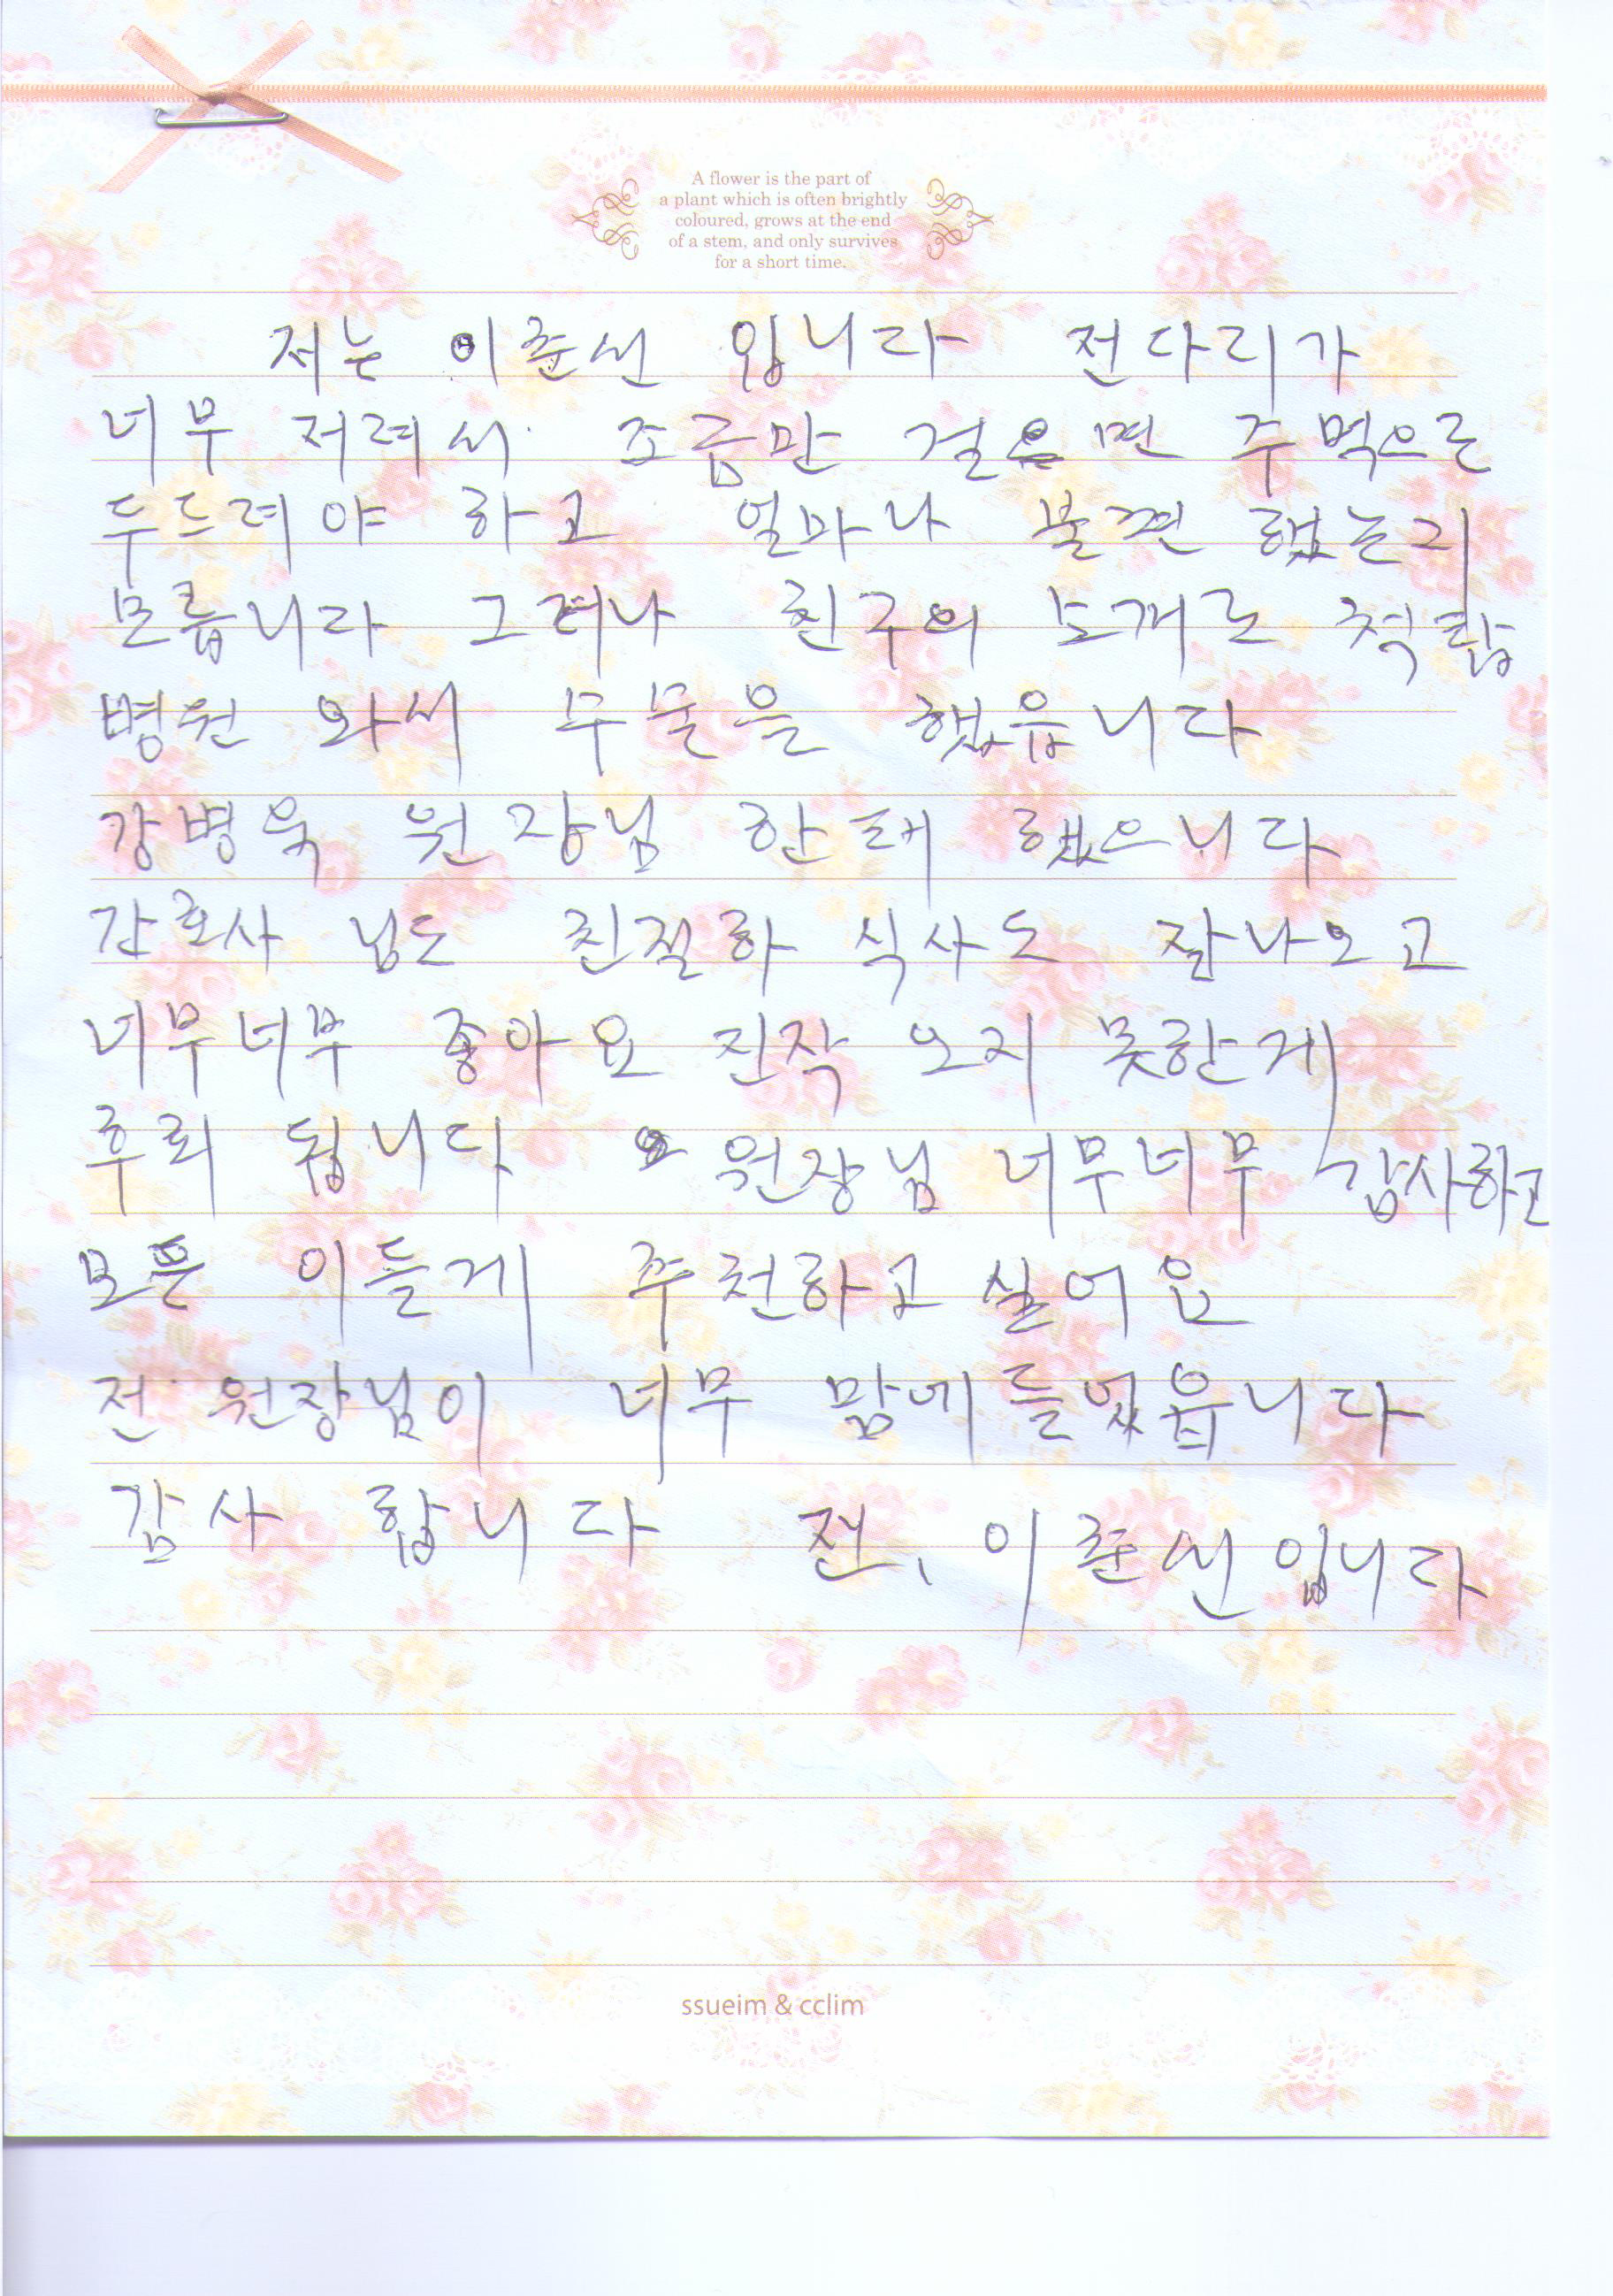 A flower is the part of
a plant which is often brightly
coloured, grows at the end
of a stem, and only survives
for a short time.
저는 이춘선 입니다 전다리가
너무 저려서 조금만 걸으면 주먹으로
두드려야 하고 얼마나 불편 했는지
모릅니다 그러나 친구의 소개로 척탑
병원 와서 수술을 했읍니다
강병욱 원장님 한테 했으니다
간호사 님도 친절하 식사도 잘나오고
너무너무 좋아요 진작 오지 못한게
후회 됩니다 원장님 너무너무 감사하고
모든 이들게 추천하고 싶어요
전 원장님이 너무 맘에들었읍니다
감사 합니다 전, 이춘선입니다
ssueim & cclim